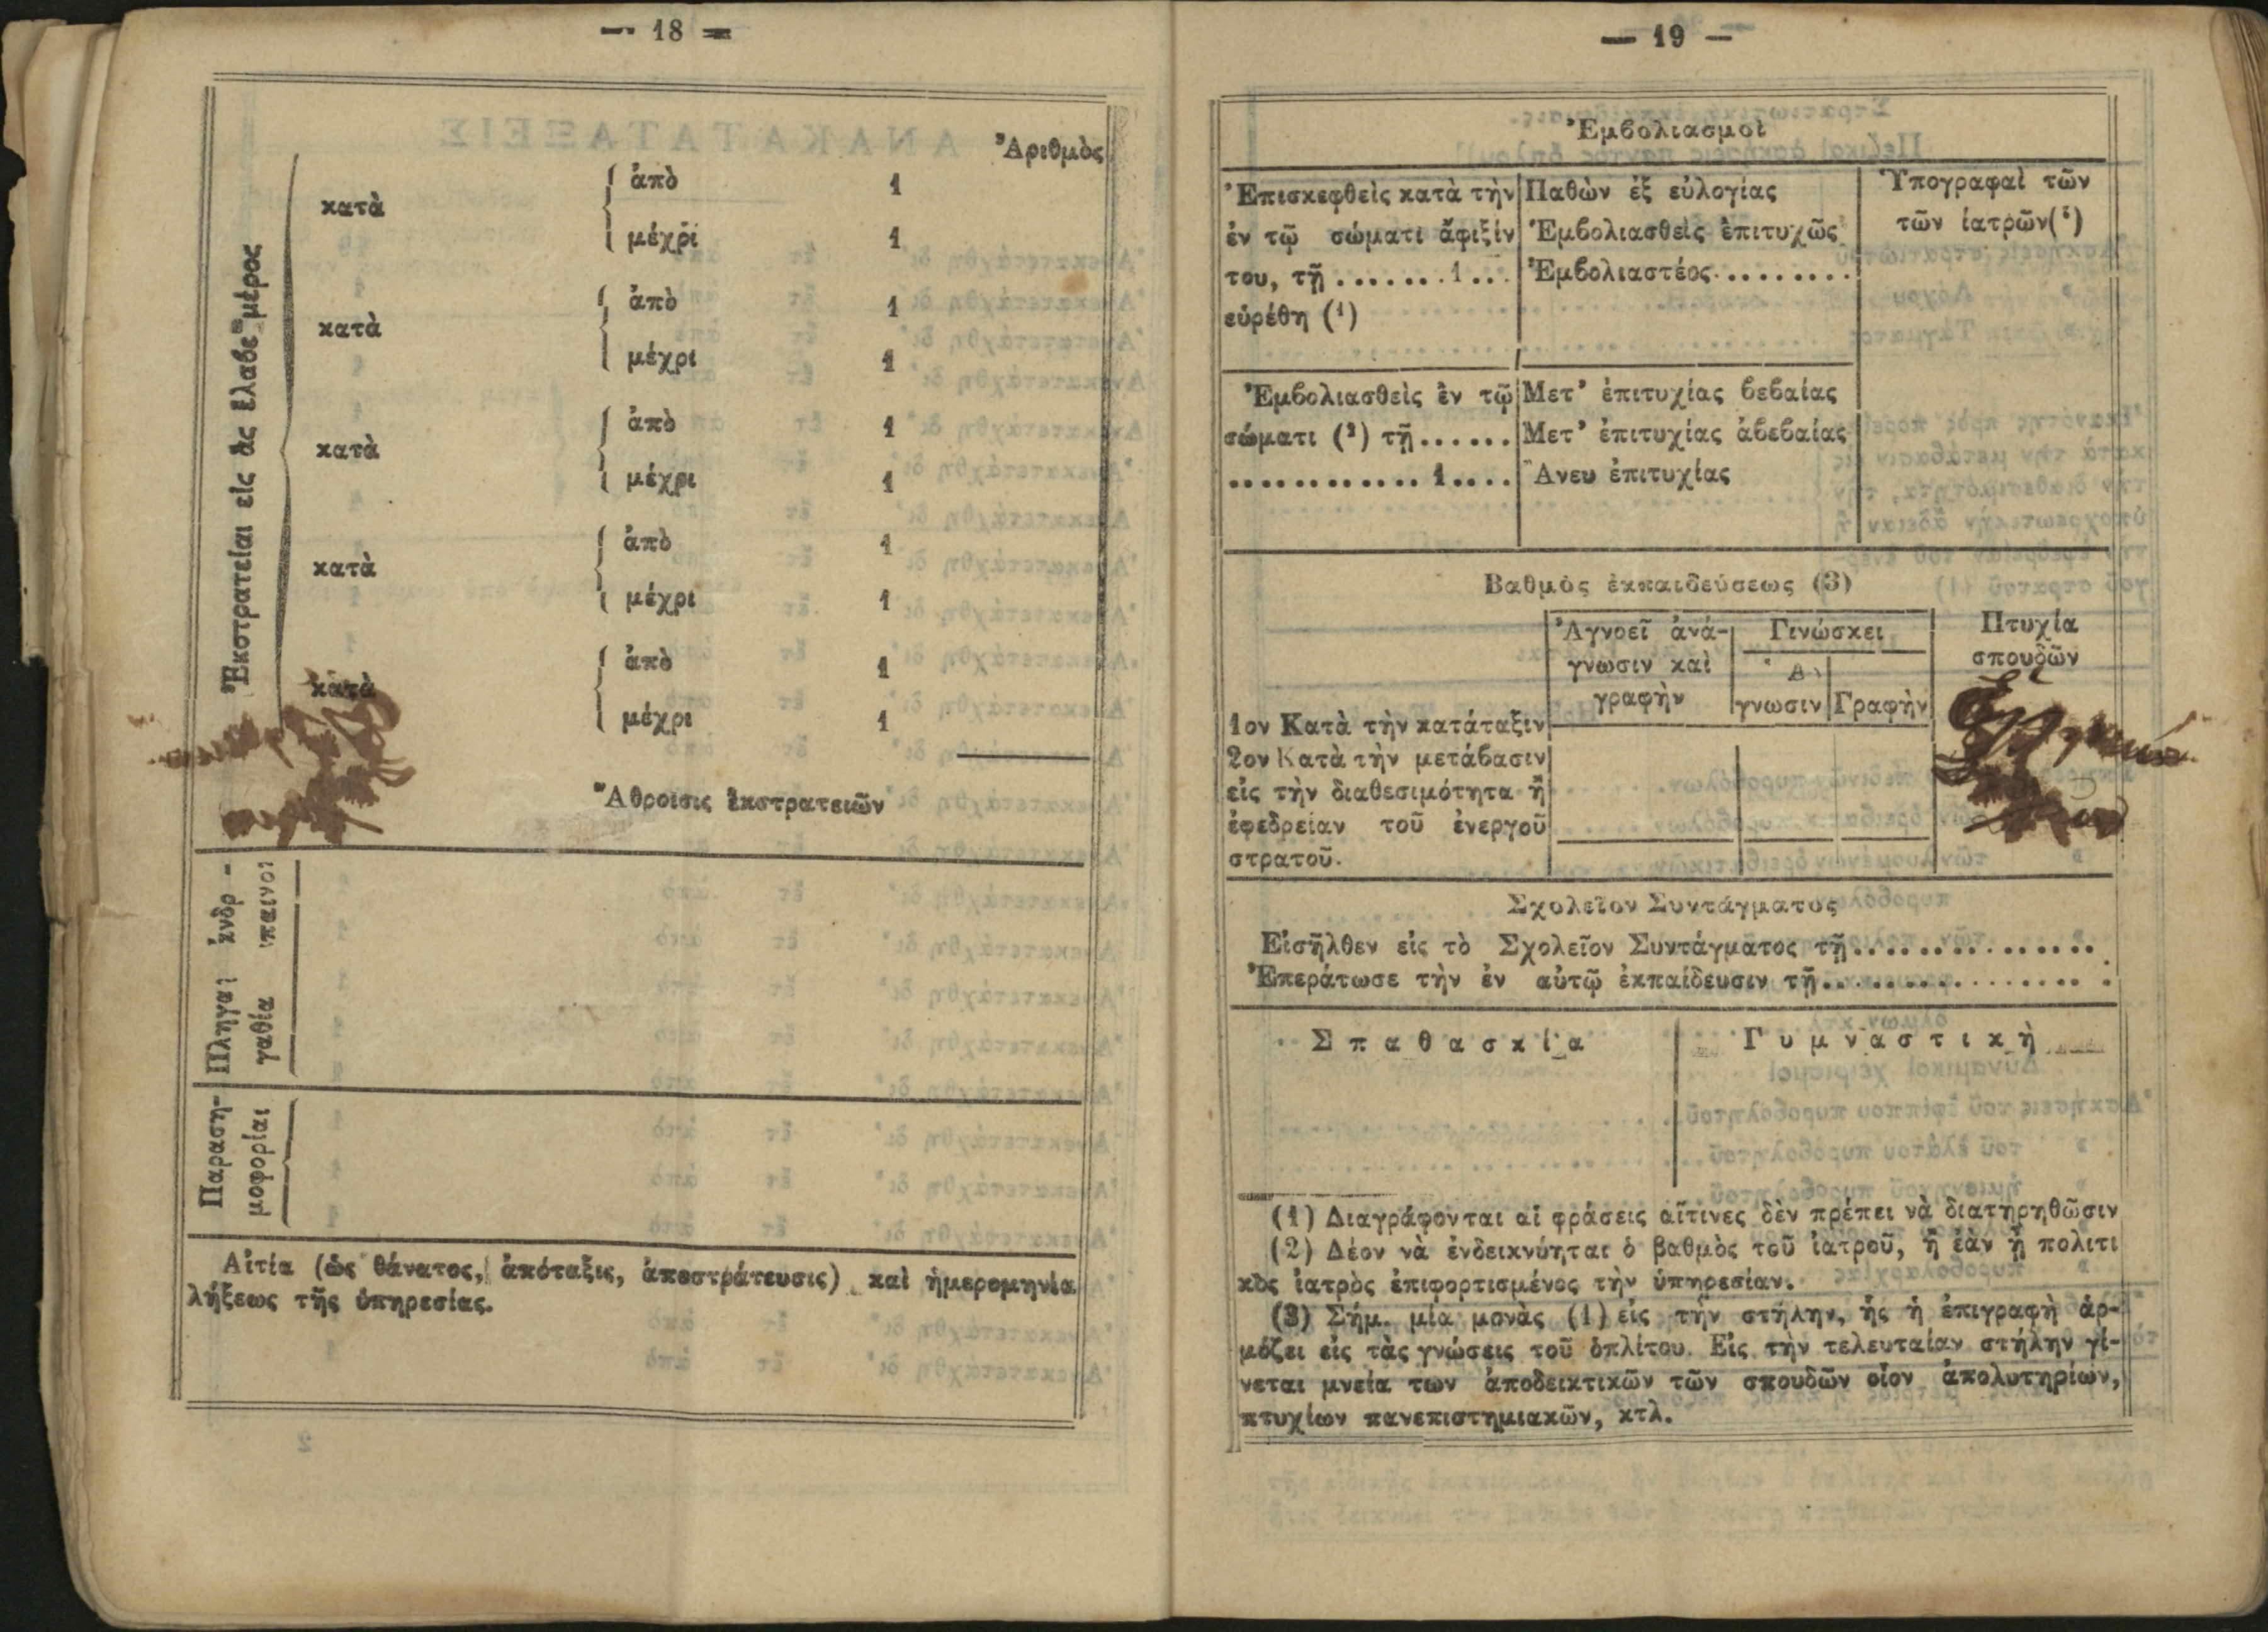 — 18 —
Ἀριθμὸς
Ἐκστρατεῖαι εἰς ἃς ἔλαβε μέρος
κατὰ
ἀπὸ 1
μέχρι 1
κατὰ
ἀπὸ 1
μέχρι 1
κατὰ
ἀπὸ 1
μέχρι 1
κατὰ
ἀπὸ 1
μέχρι 1
κατὰ
ἀπὸ 1
μέχρι 1
Ἄθροισις ἐκστρατειῶν
Πληγαὶ ἀνδρ-
γαθία παινοι
Παραση-
μοφορίαι
Αἰτία (ὡς θάνατος, ἀπόταξις, ἀποστράτευσις) καὶ ἡμερομηνία
λήξεως τῆς ὑπηρεσίας.
— 19 —
Ἐμβολιασμοὶ
Ἐπισκεφθεὶς κατὰ τὴν
ἐν τῷ σώματι ἄφιξίν
του, τῇ.......1...
εὑρέθη (1)
Παθὼν ἐξ εὐλογίας
Ἐμβολιασθεὶς ἐπιτυχῶς
Ἐμβολιαστέος.........
Ὑπογραφαὶ τῶν
τῶν ἰατρῶν(2)
Ἐμβολιασθεὶς ἐν τῷ
σώματι (2) τῇ......
............1....
Μετ' ἐπιτυχίας βεβαίας
Μετ' ἐπιτυχίας ἀβεβαίας
Ἄνευ ἐπιτυχίας
Βαθμὸς ἐκπαιδεύσεως (3)
Ἀγνοεῖ ἀνά-
γνωσιν καὶ
γραφὴν
Γινώσκει
Ἀ
γνωσιν
Γραφὴν
Πτυχία
σπουδῶν
1ον Κατὰ τὴν κατάταξιν
2ον Κατὰ τὴν μετάβασιν
εἰς τὴν διαθεσιμότητα ἢ
ἐφεδρείαν τοῦ ἐνεργοῦ
στρατοῦ.
Σχολεῖον Συντάγματος
Εἰσῆλθεν εἰς τὸ Σχολεῖον Συντάγματος τῇ...............
Ἐπεράτωσε τὴν ἐν αὐτῷ ἐκπαίδευσιν τῇ................
Σπαθασκία
Γυμναστικὴ
(1) Διαγράφονται αἱ φράσεις αἵτινες δὲν πρέπει νὰ διατηρηθῶσιν
(2) Δέον νὰ ἐνδεικνύηται ὁ βαθμὸς τοῦ ἰατροῦ, ἢ ἐὰν ᾖ πολιτι
κὸς ἰατρὸς ἐπιφορτισμένος τὴν ὑπηρεσίαν.
(3) Σήμ. μία μονὰς (1) εἰς τὴν στήλην, ἧς ἡ ἐπιγραφὴ ἁρ-
μόζει εἰς τὰς γνώσεις τοῦ ὁπλίτου. Εἰς τὴν τελευταίαν στήλην γί-
νεται μνεία των ἀποδεικτικῶν τῶν σπουδῶν οἷον ἀπολυτηρίων,
πτυχίων πανεπιστημιακῶν, κτλ.